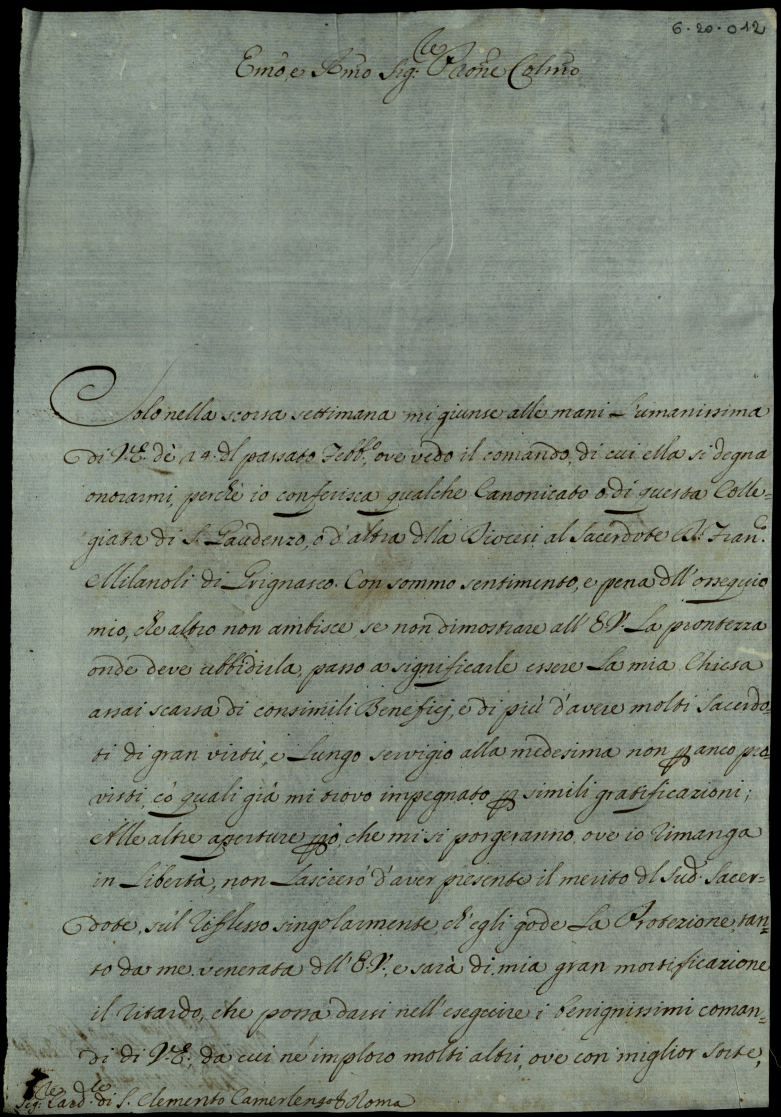 6-20-012
Emo, e Rmo Sig.r Prone Colmo
Solo nella scorsa settimana mi giunse alle mani L'umanissima
di V.E. dè 14. dl passato Febb.o, ove vedo il comando, di cui ella si degna
onorarmi, perchè io conferisca qualche Canonicato o di questa Colle=
giata di S. Gaudenzo, o d'altra dlla Diocesi al Sacerdote D. Fran.o
Milanoli di Grignasco. Con sommo sentimento, e pena dll'ossequio
mio, che altro non ambisce se non dimostrare all'E.V. La prontezza
onde deve ubbidirla, passo a significarle essere La mia Chiesa
assai scarsa di consimili Beneficj, e di più d'avere molti Sacerdo=
ti di gran virtù, e Lungo servigio alla medesima non p anco pro=
visti, co' quali già mi trovo impegnato p simili gratificazioni;
Alle altre aperture pò, che mi si porgeranno, ove io rimanga
in Libertà, non Lascierò d'aver presente il merito dl Sud.o Sacer=
dote, sùl riflesso singolarmente, ch'egli gode La Protezione tan=
to da me venerata dll'E.V., e sarà di mia gran mortificazione
il ritardo, che possa darsi nell'eseguire i benignissimi coman=
di di V.E., da cui nè imploro molti altri, ove con miglior sorte,
Sig.r Card.le di S. Clemente Camerlengo Roma